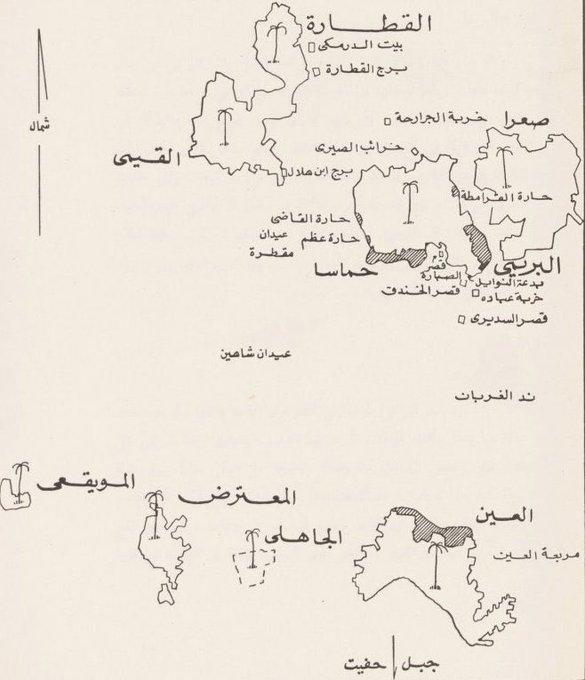 القطارة
بيت الدرمكي
برج القطارة
شمال
خربة الجرارحة
صعرا
القيمي
خرائب الصيري
برج ابن هلال
حارة القرامطة
حارة القاضي
حارة عظم
عيدان
مقطرة
حماسا
البريمي
قصر
الصبارة
بدعة النوايل
خربة عباده
قصر الخندق
قصر السديري
عيدان شاهين
ند الغربان
المويقعي
المعترض
الجاهلي
العين
مربعة العين
جبل حفيت